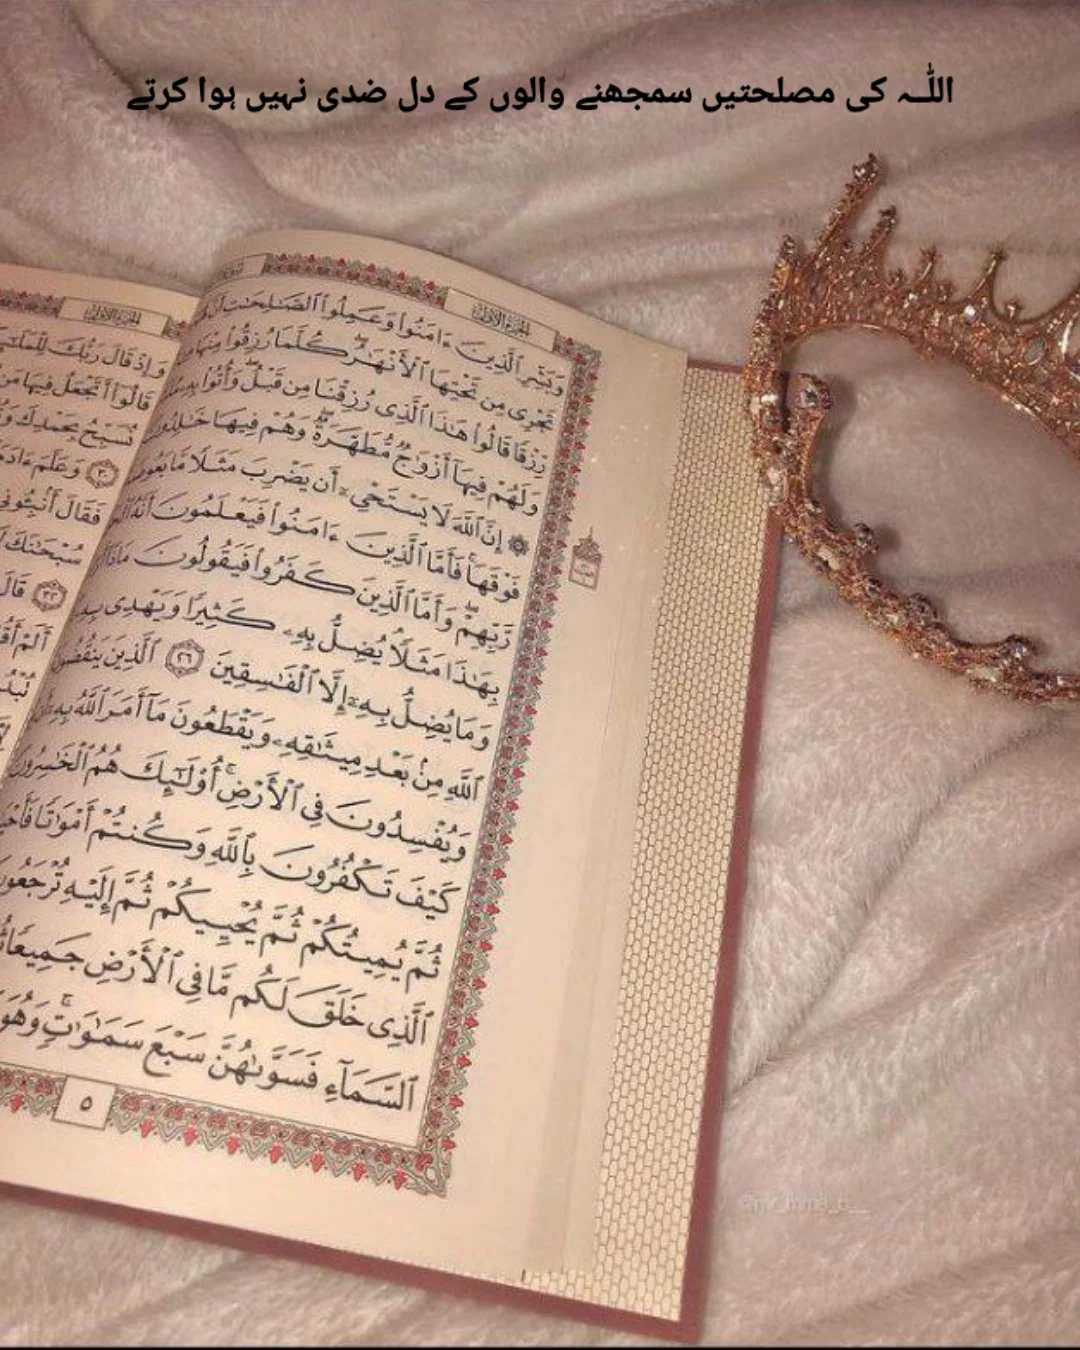 اللّٰہ کی مصلحتیں سمجھنے والوں کے دل ضدی نہیں ہوا کرتے
وَبَشِّرِ ٱلَّذِينَ ءَامَنُوا۟ وَعَمِلُوا۟ ٱلصَّـٰلِحَـٰتِ
تَجْرِى مِن تَحْتِهَا ٱلْأَنْهَـٰرُ ۖ كُلَّمَا رُزِقُوا۟ مِنْهَا
رِّزْقًا قَالُوا۟ هَـٰذَا ٱلَّذِى رُزِقْنَا مِن قَبْلُ ۖ وَأُتُوا۟ بِهِۦ
وَلَهُمْ فِيهَآ أَزْوَٰجٌ مُّطَهَّرَةٌ ۖ وَهُمْ فِيهَا خَـٰلِدُونَ
۞ إِنَّ ٱللَّهَ لَا يَسْتَحْىِۦٓ أَن يَضْرِبَ مَثَلًا مَّا بَعُوضَ
فَوْقَهَا ۚ فَأَمَّا ٱلَّذِينَ ءَامَنُوا۟ فَيَعْلَمُونَ أَنَّهُ
رَّبِّهِمْ ۖ وَأَمَّا ٱلَّذِينَ كَفَرُوا۟ فَيَقُولُونَ مَاذَآ
بِهَـٰذَا مَثَلًا ۘ يُضِلُّ بِهِۦ كَثِيرًا وَيَهْدِى بِهِ
وَمَا يُضِلُّ بِهِۦٓ إِلَّا ٱلْفَـٰسِقِينَ ٢٦ ٱلَّذِينَ يَنقُضُونَ
ٱللَّهِ مِنۢ بَعْدِ مِيثَـٰقِهِۦ وَيَقْطَعُونَ مَآ أَمَرَ ٱللَّهُ بِهِۦٓ
وَيُفْسِدُونَ فِى ٱلْأَرْضِ ۚ أُو۟لَـٰٓئِكَ هُمُ ٱلْخَـٰسِرُونَ
كَيْفَ تَكْفُرُونَ بِٱللَّهِ وَكُنتُمْ أَمْوَٰتًا فَأَحْيَـ
ثُمَّ يُمِيتُكُمْ ثُمَّ يُحْيِيكُمْ ثُمَّ إِلَيْهِ تُرْجَعُونَ
ٱلَّذِى خَلَقَ لَكُم مَّا فِى ٱلْأَرْضِ جَمِيعًا
ٱلسَّمَآءِ فَسَوَّىٰهُنَّ سَبْعَ سَمَـٰوَٰتٍ ۚ وَهُوَ
٥
وَإِذْ قَالَ رَبُّكَ لِلْمَلَـٰٓئِ
قَالُوٓا۟ أَتَجْعَلُ فِيهَا مَن
نُسَبِّحُ بِحَمْدِكَ وَ
٣٠ وَعَلَّمَ ءَادَمَ
فَقَالَ أَنۢبِـُٔونِى
سُبْحَـٰنَكَ
٣٢ قَالَ
أَلَمْ أَقُل